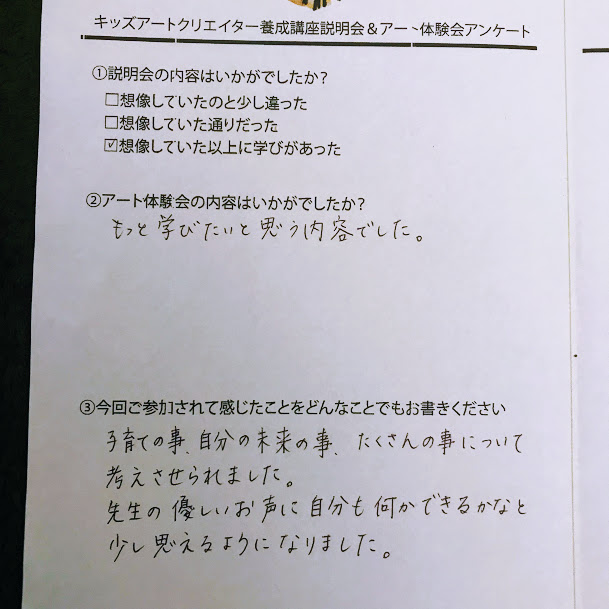 キッズアートクリエイター養成講座説明会＆アート体験会アンケート
①説明会の内容はいかがでしたか？
□想像していたのと少し違った
□想像していた通りだった
☑想像していた以上に学びがあった
②アート体験会の内容はいかがでしたか？
もっと学びたいと思う内容でした。
③今回ご参加されて感じたことをどんなことでもお書きください
子育ての事、自分の未来の事、たくさんの事について
考えさせられました。
先生の優しいお声に自分も何かできるかなと
少し思えるようになりました。